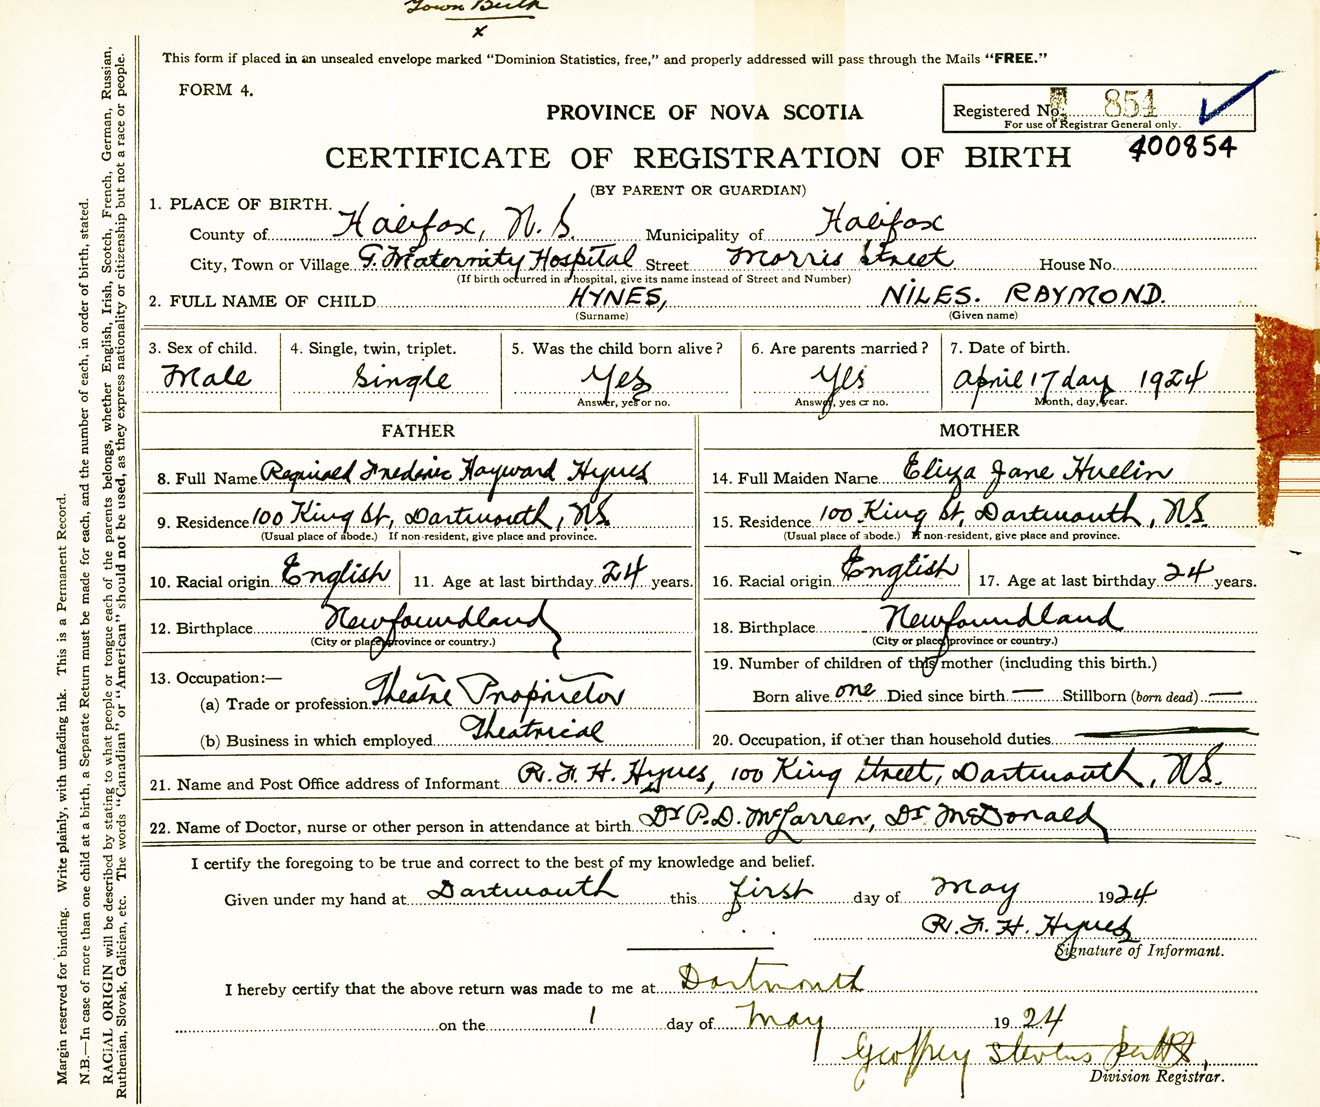 Town Birth
x
This form if placed in an unsealed envelope marked "Dominion Statistics, free," and properly addressed will pass through the Mails "FREE."
FORM 4.
Registered No. 854
For use of Registrar General only.
PROVINCE OF NOVA SCOTIA
400854
CERTIFICATE OF REGISTRATION OF BIRTH
(BY PARENT OR GUARDIAN)
1. PLACE OF BIRTH.
County of Halifax, N.S. Municipality of Halifax
City, Town or Village G. Maternity Hospital Street Morris Street House No.
(If birth occurred in a hospital, give its name instead of Street and Number)
2. FULL NAME OF CHILD HYNES, NILES. RAYMOND.
(Surname) (Given name)
3. Sex of child. 4. Single, twin, triplet. 5. Was the child born alive? 6. Are parents married? 7. Date of birth.
Male Single Yes Yes April 17 day 1924
Answer, yes or no. Answer, yes or no. Month, day, year.
FATHER MOTHER
8. Full Name Reginald Frederic Hayward Hynes 14. Full Maiden Name Eliza Jane Huelin
9. Residence 100 King St, Dartmouth, N.S. 15. Residence 100 King St, Dartmouth, N.S.
(Usual place of abode.) If non-resident, give place and province. (Usual place of abode.) If non-resident, give place and province.
10. Racial origin English 11. Age at last birthday 24 years. 16. Racial origin English 17. Age at last birthday 24 years.
12. Birthplace Newfoundland 18. Birthplace Newfoundland
(City or place, province or country.) (City or place, province or country.)
13. Occupation:— 19. Number of children of this mother (including this birth.)
(a) Trade or profession Theatre Proprietor Born alive one Died since birth — Stillborn (born dead) —
(b) Business in which employed Theatrical 20. Occupation, if other than household duties
21. Name and Post Office address of Informant R. F. H. Hynes, 100 King Street, Dartmouth, N.S.
22. Name of Doctor, nurse or other person in attendance at birth Dr P.D. McLarren, Dr McDonald
I certify the foregoing to be true and correct to the best of my knowledge and belief.
Given under my hand at Dartmouth this first day of May 1924
R. F. H. Hynes
Signature of Informant.
I hereby certify that the above return was made to me at Dartmouth
on the 1 day of May 1924
Geoffrey Stevens
Division Registrar.
Margin reserved for binding. Write plainly, with unfading ink. This is a Permanent Record.
N.B.—In case of more than one child at a birth, a Separate Return must be made for each, and the number of each, in order of birth, stated.
RACIAL ORIGIN will be described by stating to what people or tongue each of the parents belongs, whether English, Irish, Scotch, French, German, Russian,
Ruthenian, Slovak, Galician, etc. The words "Canadian" or "American" should not be used, as they express nationality or citizenship but not a race or people.